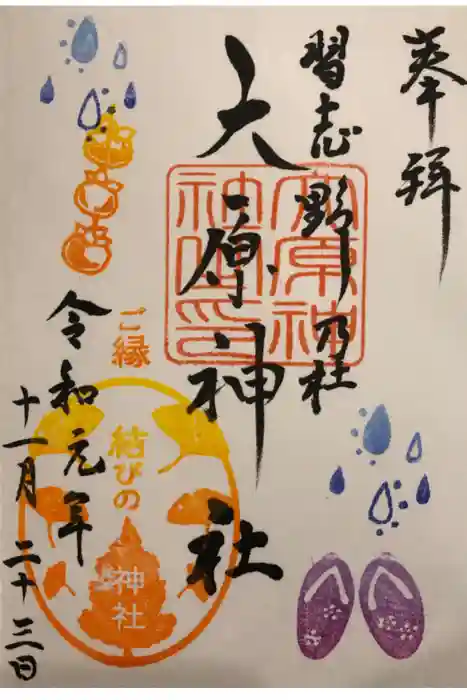 奉拝
習志野乃社
大原神社
大原神
社之印
ご縁
結びの
神社
令和元年
十一月二十三日